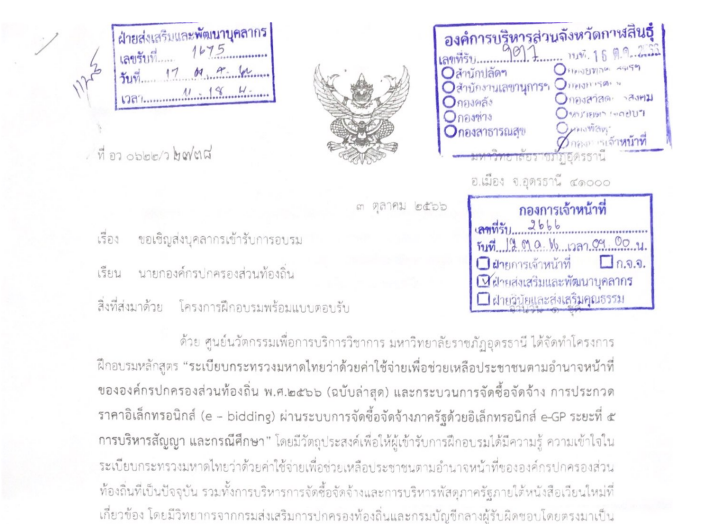 ฝ่ายส่งเสริมและพัฒนาบุคลากร
เลขรับที่ 1675
วันที่ 17 ต.ค.
เวลา
องค์การบริหารส่วนจังหวัดกาฬสินธุ์
เลขที่รับ วันที่ 16 ต.ค.
สำนักปลัดฯ
สำนักงานเลขานุการฯ
กองคลัง
กองช่าง
กองสาธารณสุข
กองการเจ้าหน้าที่
ที่ อว ๐๖๒๒/ว
มหาวิทยาลัยราชภัฏอุดรธานี
อ.เมือง จ.อุดรธานี ๔๑๐๐๐
๓ ตุลาคม ๒๕๖๖
กองการเจ้าหน้าที่
เลขที่รับ 2666
วันที่ เวลา 09.00 น.
ฝ่ายการเจ้าหน้าที่ ก.จ.จ.
ฝ่ายส่งเสริมและพัฒนาบุคลากร
ฝ่ายวินัยและส่งเสริมคุณธรรม
เรื่อง ขอเชิญส่งบุคลากรเข้ารับการอบรม
เรียน นายกองค์กรปกครองส่วนท้องถิ่น
สิ่งที่ส่งมาด้วย โครงการฝึกอบรมพร้อมแบบตอบรับ
ด้วย ศูนย์นวัตกรรมเพื่อการบริการวิชาการ มหาวิทยาลัยราชภัฏอุดรธานี ได้จัดทำโครงการ
ฝึกอบรมหลักสูตร “ระเบียบกระทรวงมหาดไทยว่าด้วยค่าใช้จ่ายเพื่อช่วยเหลือประชาชนตามอำนาจหน้าที่
ขององค์กรปกครองส่วนท้องถิ่น พ.ศ.๒๕๖๖ (ฉบับล่าสุด) และกระบวนการจัดซื้อจัดจ้าง การประกวด
ราคาอิเล็กทรอนิกส์ (e – bidding) ผ่านระบบการจัดซื้อจัดจ้างภาครัฐด้วยอิเล็กทรอนิกส์ e-GP ระยะที่ ๕
การบริหารสัญญา และกรณีศึกษา” โดยมีวัตถุประสงค์เพื่อให้ผู้เข้ารับการฝึกอบรมได้มีความรู้ ความเข้าใจใน
ระเบียบกระทรวงมหาดไทยว่าด้วยค่าใช้จ่ายเพื่อช่วยเหลือประชาชนตามอำนาจหน้าที่ขององค์กรปกครองส่วน
ท้องถิ่นที่เป็นปัจจุบัน รวมทั้งการบริหารการจัดซื้อจัดจ้างและการบริหารพัสดุภาครัฐภายใต้หนังสือเวียนใหม่ที่
เกี่ยวข้อง โดยมีวิทยากรจากกรมส่งเสริมการปกครองท้องถิ่นและกรมบัญชีกลางผู้รับผิดชอบโดยตรงมาเป็น